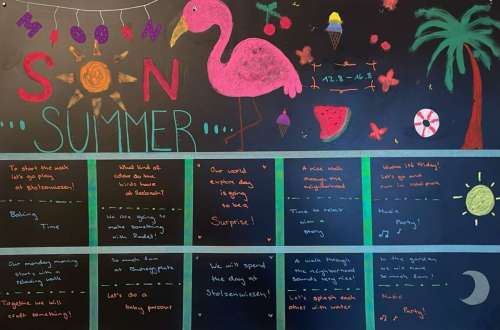 MOON
S N
SUMMER
12.8 - 16.8
To start the week
let's go play
at Stolzenwiesen!
Baking
Time
What kind of
colour do the
birds have
at
We are going to
make something
with
Our world
explore day
is going
to be a
Surprise!
A nice walk
through the
neighborhood
Time to relax
with a
story
its friday!
Let's go and
run in
Music
Party!
Our monday morning
starts with a
relaxing walk
Together we will
craft something!
So much fun
at
Let's do a
baby parcour
We will spend
the day at
Stolzenwiesen!
A walk through
the neighborhood
sounds very nice!
Let's splash each
other with water
In the garden
we will have
so much fun!
Music
Party!